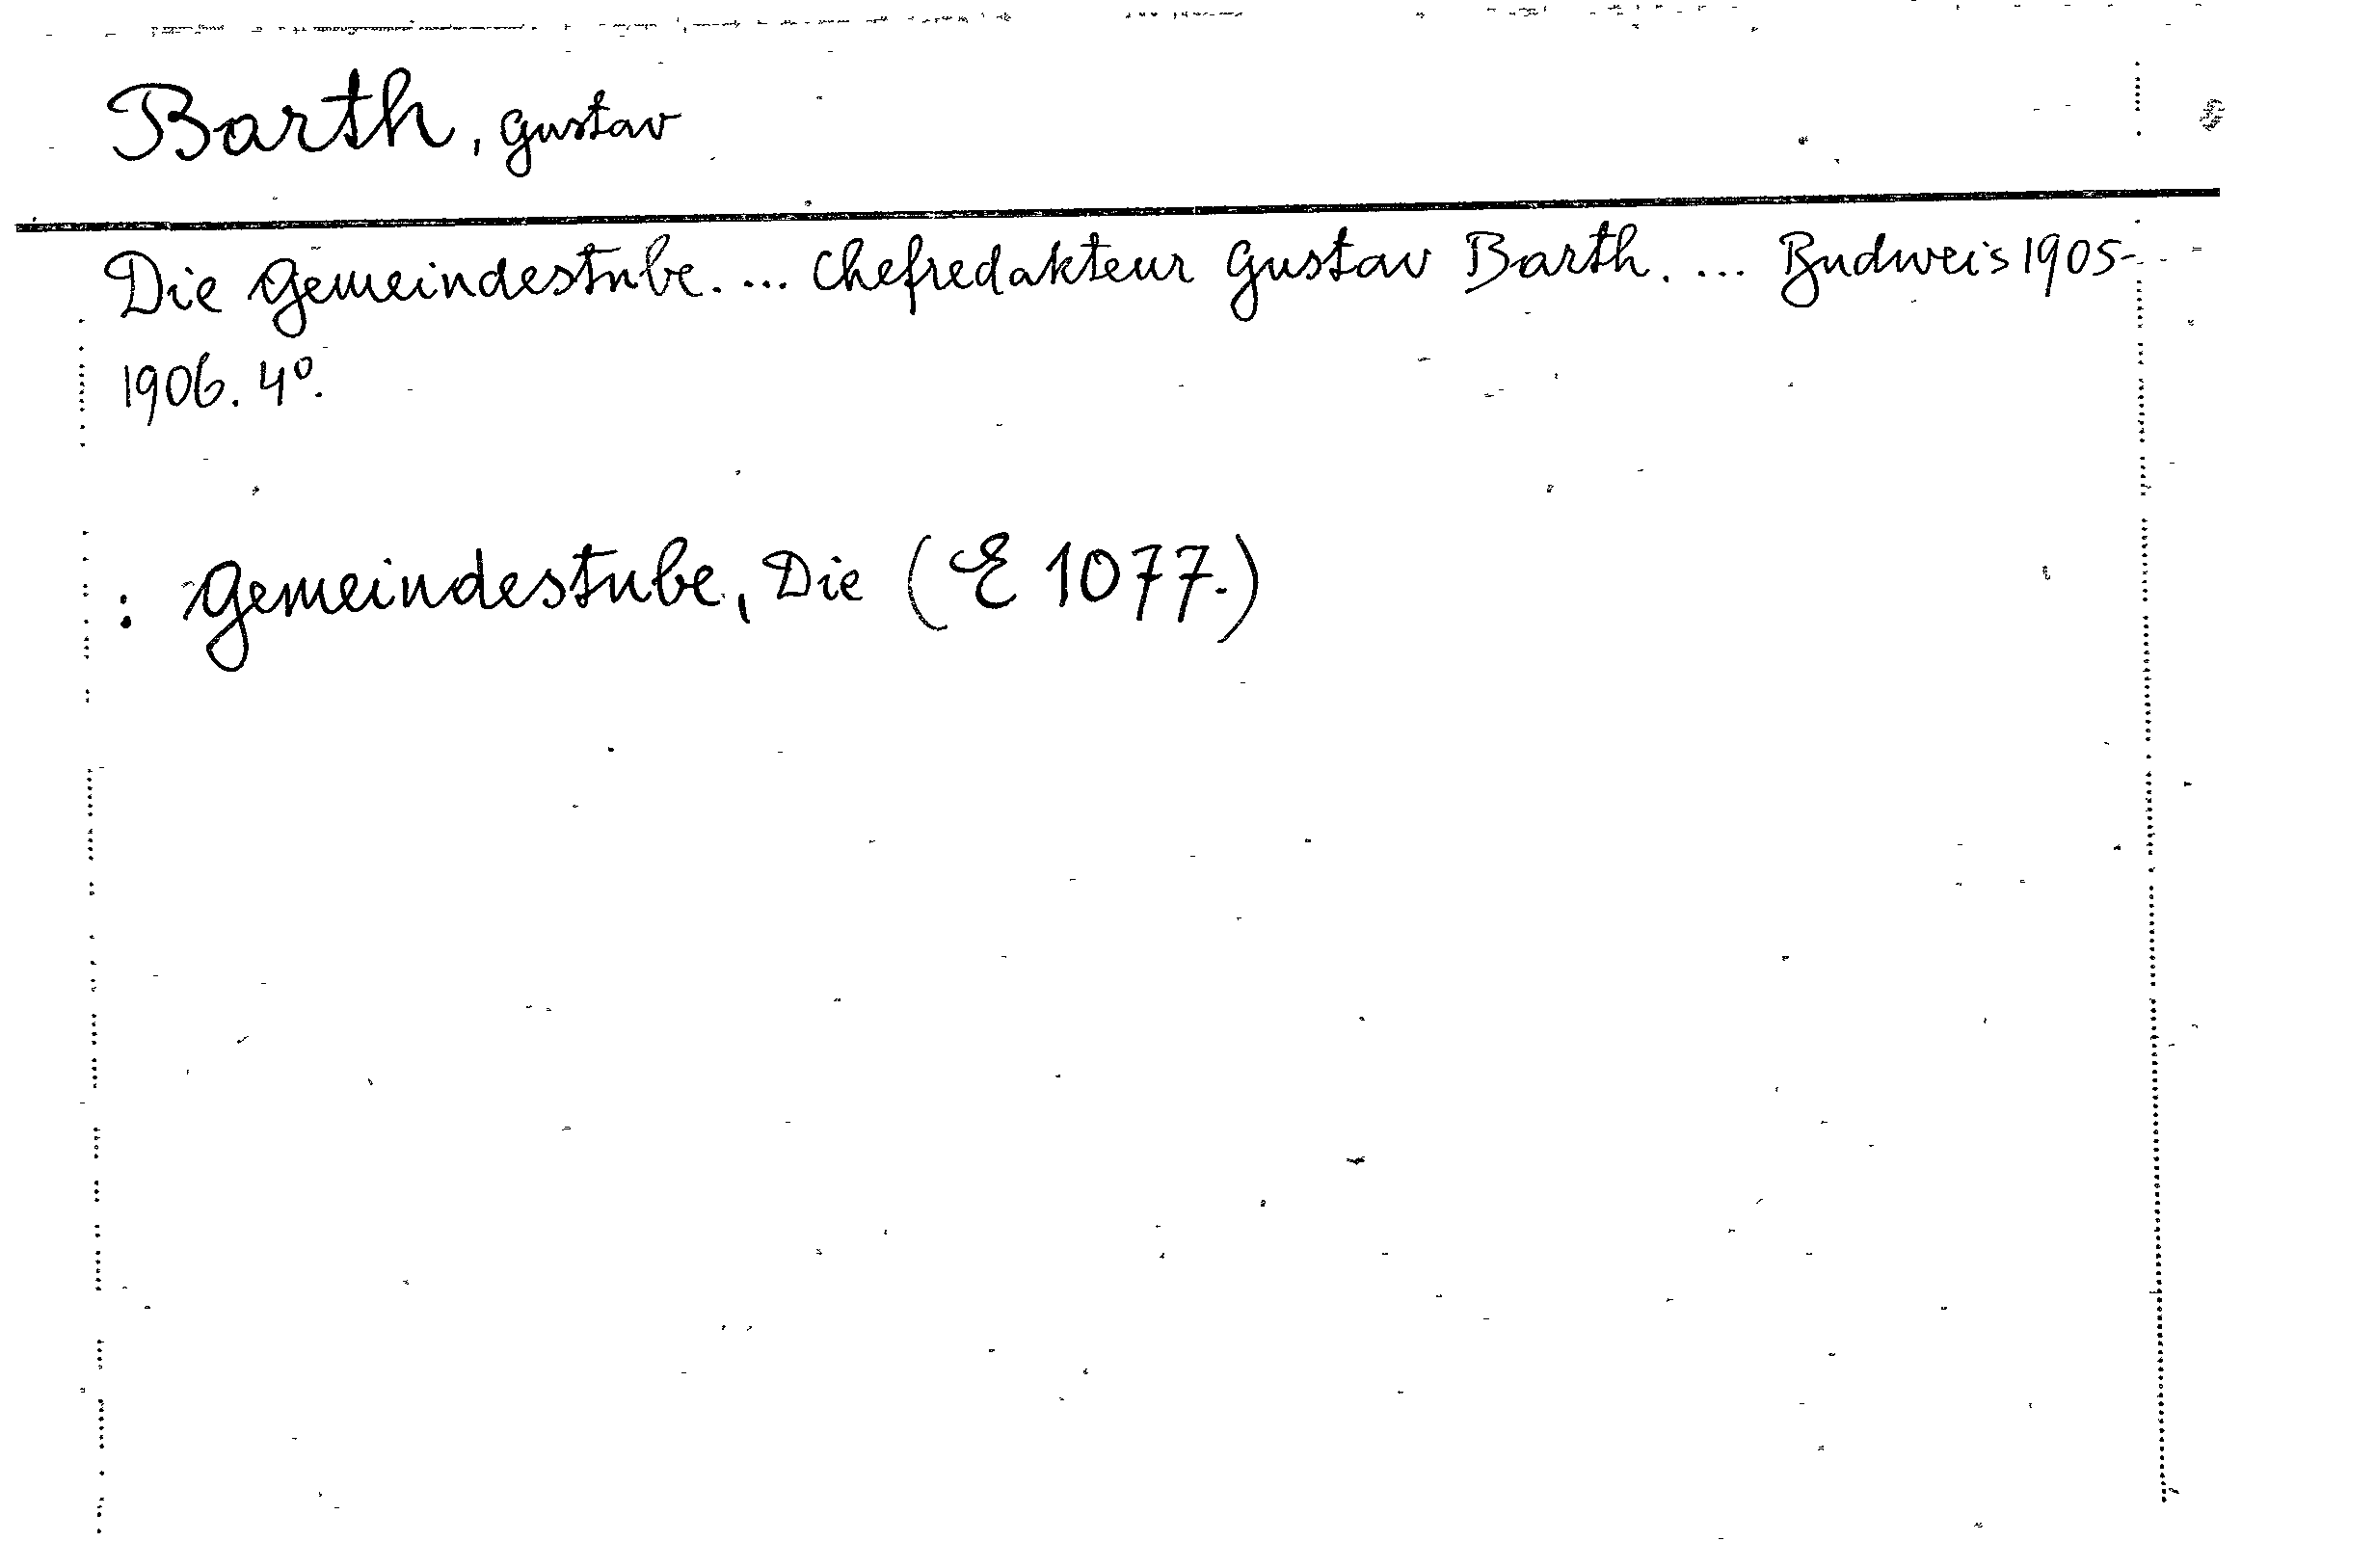 Barth, Gustav
Die Gemeindestube. ... Chefredakteur Gustav Barth. ... Budweis 1905-
1906. 4°.
: Gemeindestube, Die (E 1077.)